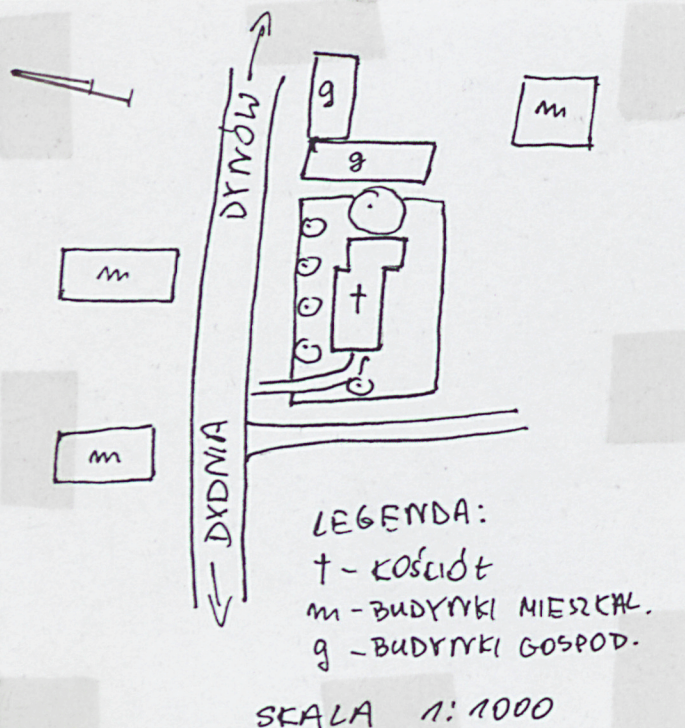 DYNÓW
g
m
g
m
†
m
DYDNIA
LEGENDA:
† - KOŚCIÓŁ
m - BUDYNKI MIESZKAL.
g - BUDYNKI GOSPOD.
SKALA 1:1000